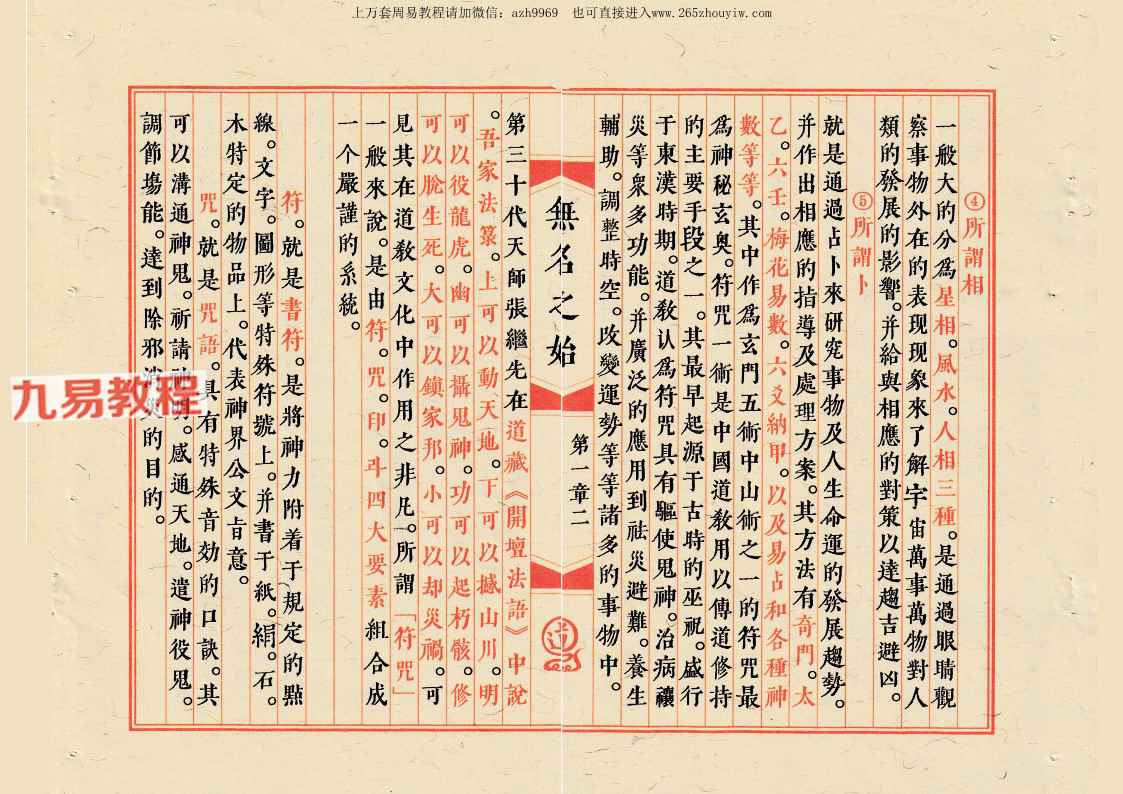 上万套周易教程请加微信：azh9969　也可直接进入www.265zhouyiw.com
④所謂相
一般大的分爲星相。風水。人相三種。是通過眼睛觀
察事物外在的表现现象來了解宇宙萬事萬物對人
類的發展的影響。并給與相應的對策以達趨吉避凶。
⑤所謂卜
就是通過占卜來研究事物及人生命運的發展趨勢。
并作出相應的指導及處理方案。其方法有奇門。太
乙。六壬。梅花易數。六爻納甲。以及易占和各種神
數等等。其中作爲玄門五術中山術之一的符咒最
爲神秘玄奥。符咒一術是中國道教用以傳道修持
的主要手段之一。其最早起源于古時的巫祝。盛行
于東漢時期。道教认爲符咒具有驅使鬼神。治病禳
災等衆多功能。并廣泛的應用到祛災避難。養生
輔助。調整時空。改變運勢等等諸多的事物中。
無名之始
第一章二
第三十代天師張繼先在道藏《開壇法語》中說
。吾家法箓。上可以動天地。下可以撼山川。明
可以役龍虎。幽可以攝鬼神。功可以起朽骸。修
可以脫生死。大可以鎮家邦。小可以却災禍。可
見其在道教文化中作用之非凡。所謂「符咒」
一般來說。是由符。咒。印。斗四大要素組合成
一个嚴謹的系統。
符。就是書符。是將神力附着于規定的點
線。文字。圖形等特殊符號上。并書于紙。絹。石。
木特定的物品上。代表神界公文旨意。
咒。就是咒語。具有特殊音効的口訣。其
可以溝通神鬼。祈請神明。感通天地。遣神役鬼。
調節塲能。達到除邪消災的目的。
九易教程